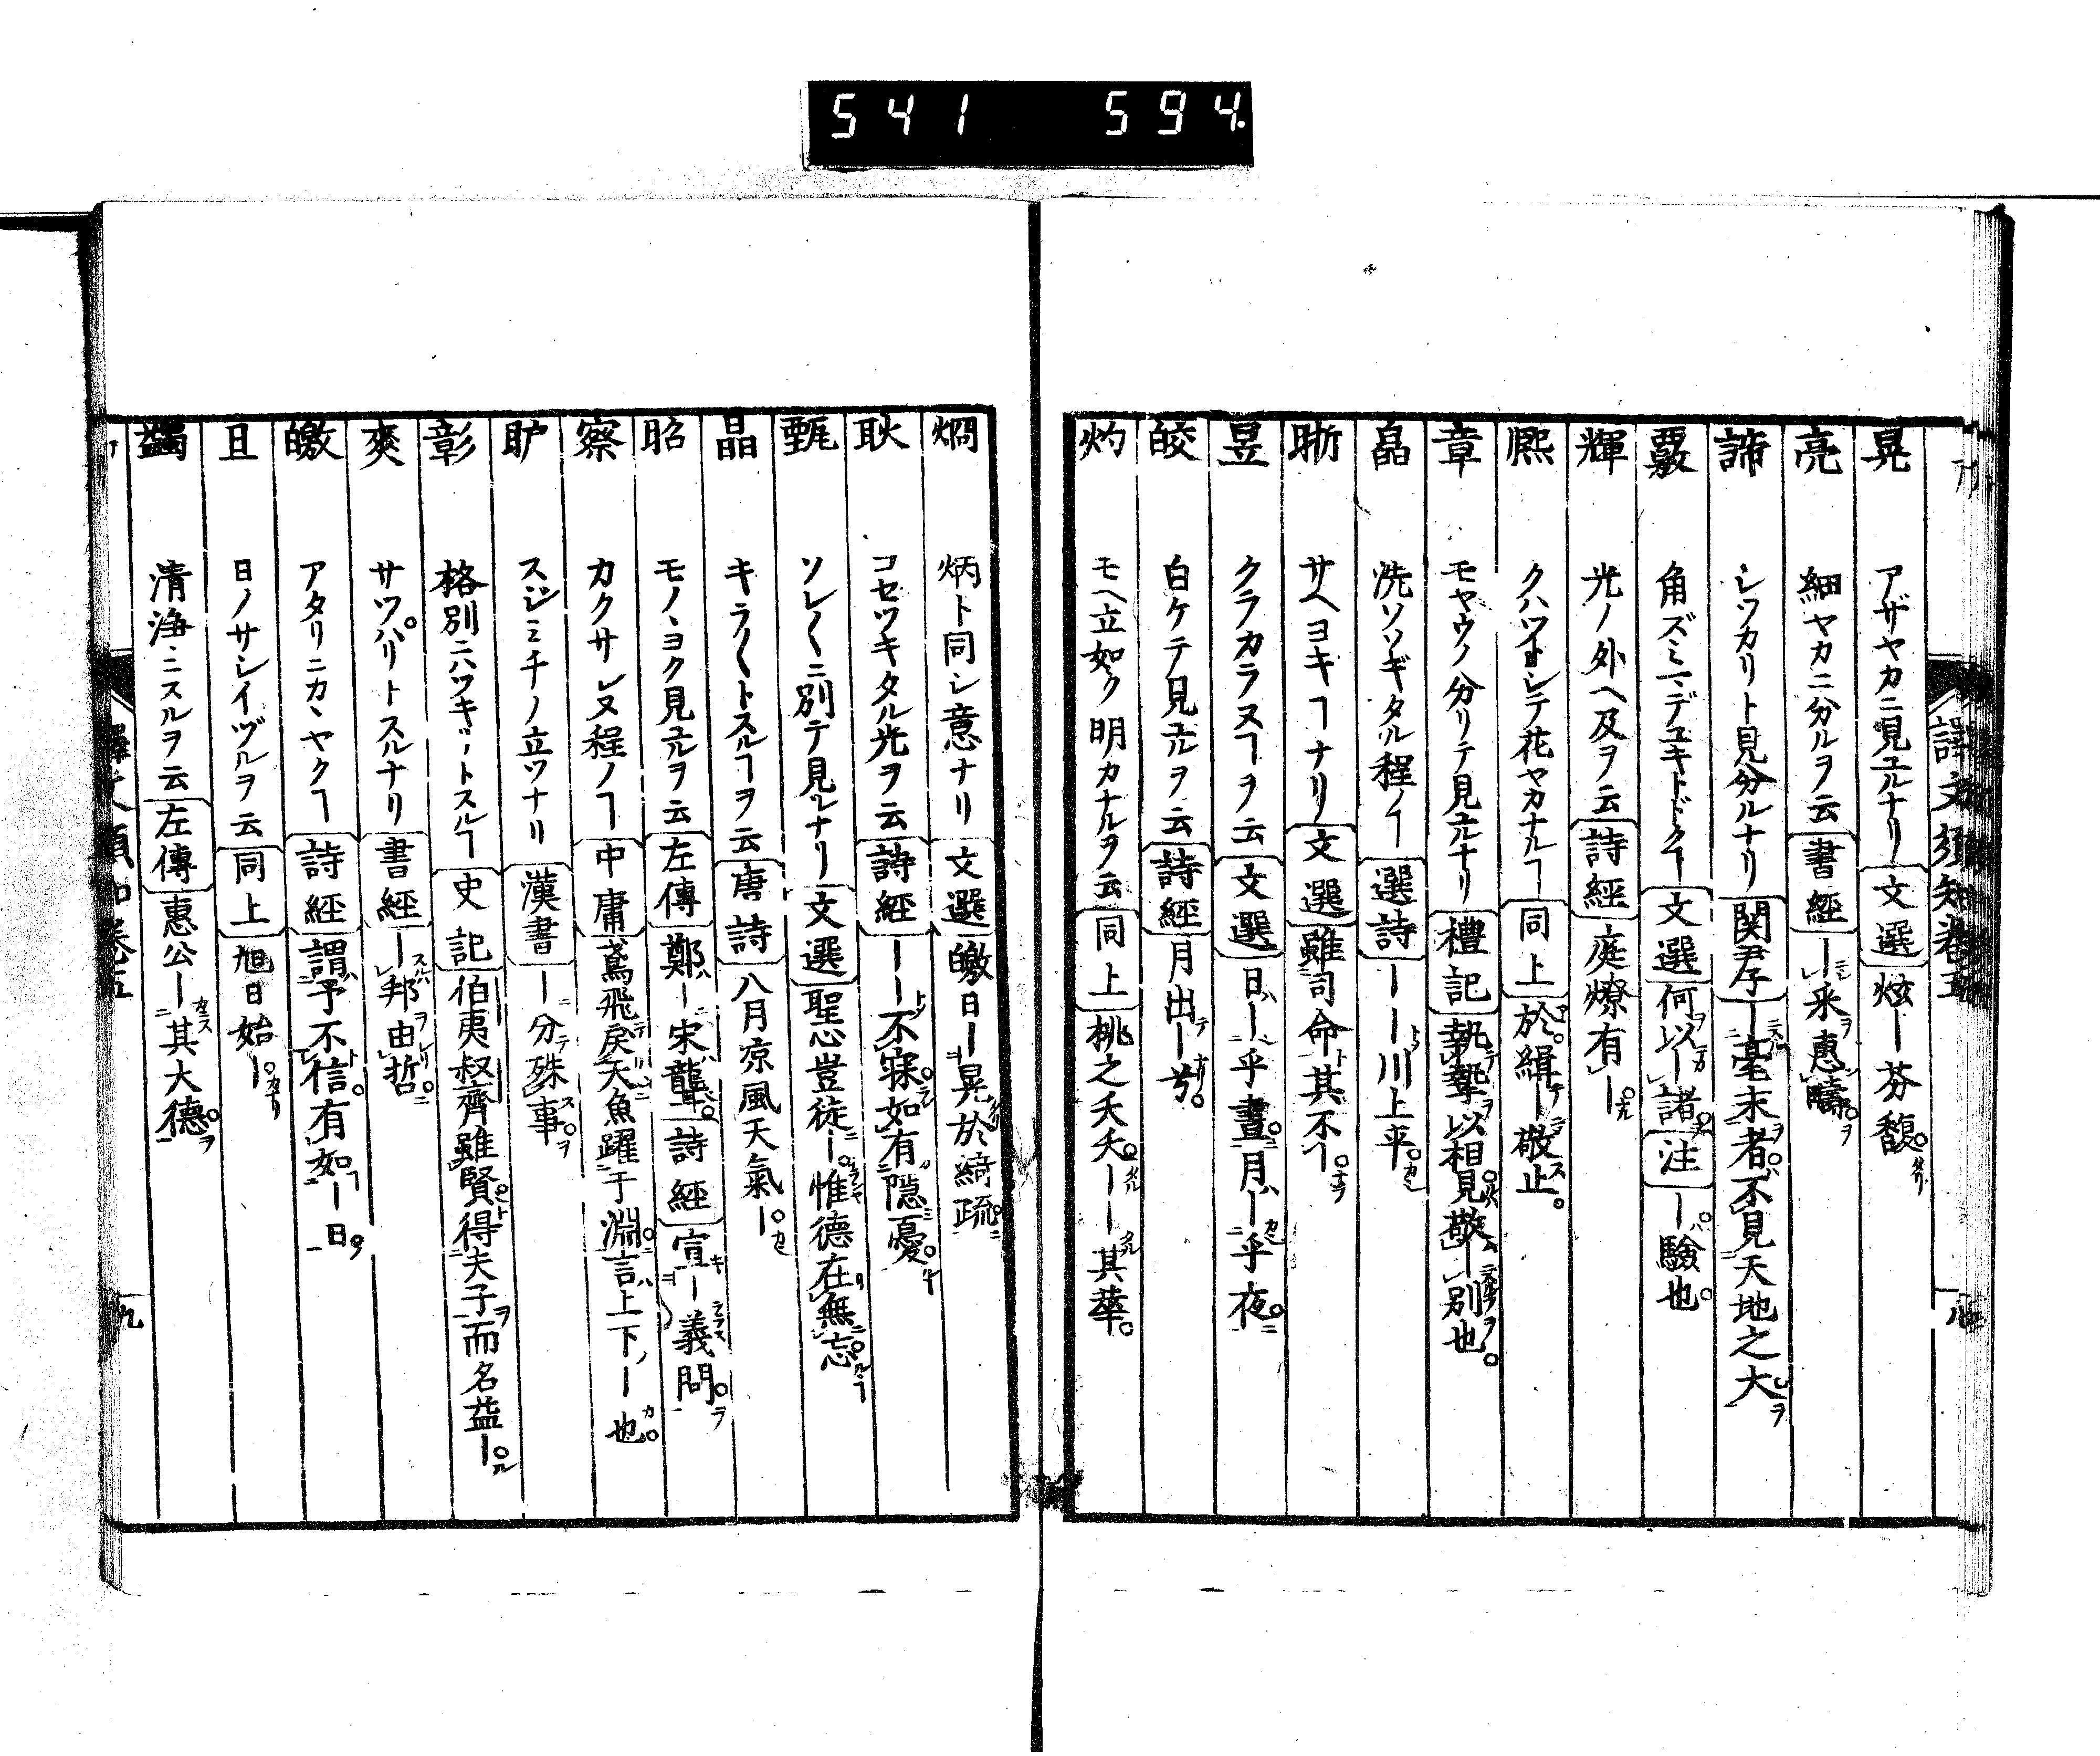 541 594
譯文須知卷五
晃 アザヤカニ見ユルナリ 文選 炫ー芬馥
亮 細ヤカニ分ルヲ云 書經 ー采惠疇
諦 シツカリト見分ルナリ 関尹子 ー毫末者不見天地之大
覈 角ズミ〳〵デユキトドクヿ 文選 何以ー諸 注 ー驗也
輝 光ノ外ヘ及ヲ云 詩經 庭燎有ー
熈 クハツトシテ花ヤカナルヿ 同上 於緝ー敬止
章 モヤウノ分リテ見ユルナリ 禮記 執摯以相見敬ー別也
皛 洗ソソギタル程ノヿ 選詩 ーー川上平
晣 サヘヨキヿナリ 文選 雖司命其不ー
昱 クラカラヌヿヲ云 文選 日ー乎晝月ー乎夜
皎 白ケテ見ユルヲ云 詩經 月出ー兮
灼 モヘ立如ク明カナルヲ云 同上 桃之夭夭ーー其華
烱 炳ト同シ意ナリ 文選 皦日ー晃於綺疏
耿 コセツキタル光ヲ云 詩經 ーー不寐如有隱憂
甄 ソレ〳〵ニ別テ見ルナリ 文選 聖心豈徒ー惟德在無忘
晶 キラ〳〵トスルヿヲ云 唐詩 八月凉風天氣ー
昭 モノヽヨク見ユルヲ云 左傳 鄭ー宋聾 詩經 宣ー義問
察 カクサレヌ程ノヿ 中庸 鳶飛戻天魚躍于淵言上下ー也
スジミチノ立ツナリ 漢書 ー分殊事
彰 格別ニハツキリトスルヿ 史記 伯夷叔齊雖賢得夫子而名益ー
爽 サツハリトスルナリ 書經 ー邦由哲
皦 アタリニカヽヤクヿ 詩經 謂予不信有如ー日
旦 日ノサシイヅルヲ云 同上 旭日始ー
蠲 清浄ニスルヲ云 左傳 惠公ー其大德
九